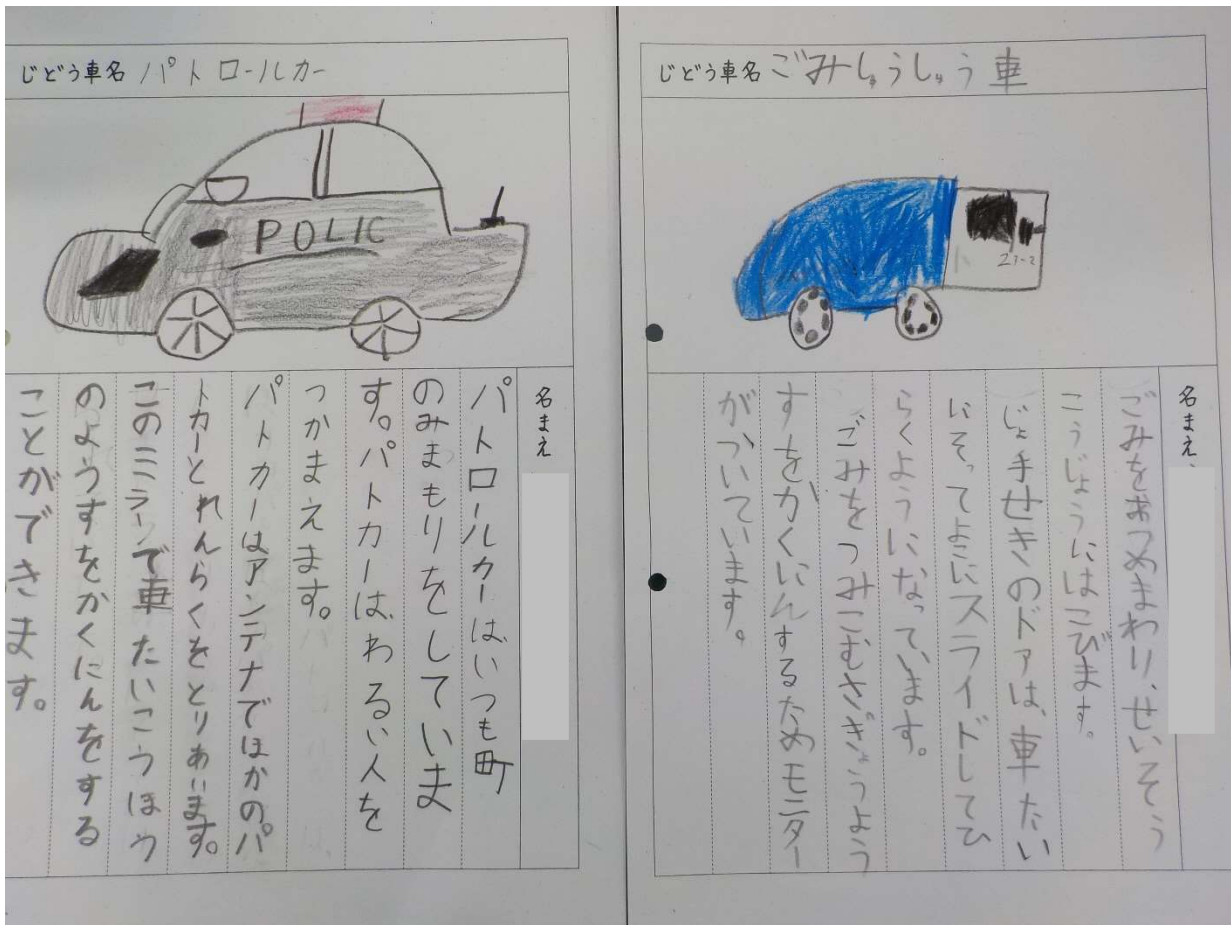 じどう車名 パトロールカー
POLIC
名まえ
パトロールカーはいつも町
のみまもりをしていま
す。パトカーは、わるい人を
つかまえます。
パトカーはアンテナでほかのパ
トカーとれんらくをとりあいます。
このミラーで車たいこうほう
のようすをかくにんをする
ことができます。
じどう車名 ごみしゅうしゅう車
名まえ
ごみをあつめまわり、せいそう
こうじょうにはこびます。
じょ手せきのドアは、車たい
にそってよこにスライドしてひ
らくようになっています。
ごみをつみこむさぎょうよう
すをかくにんするためモニター
がついています。